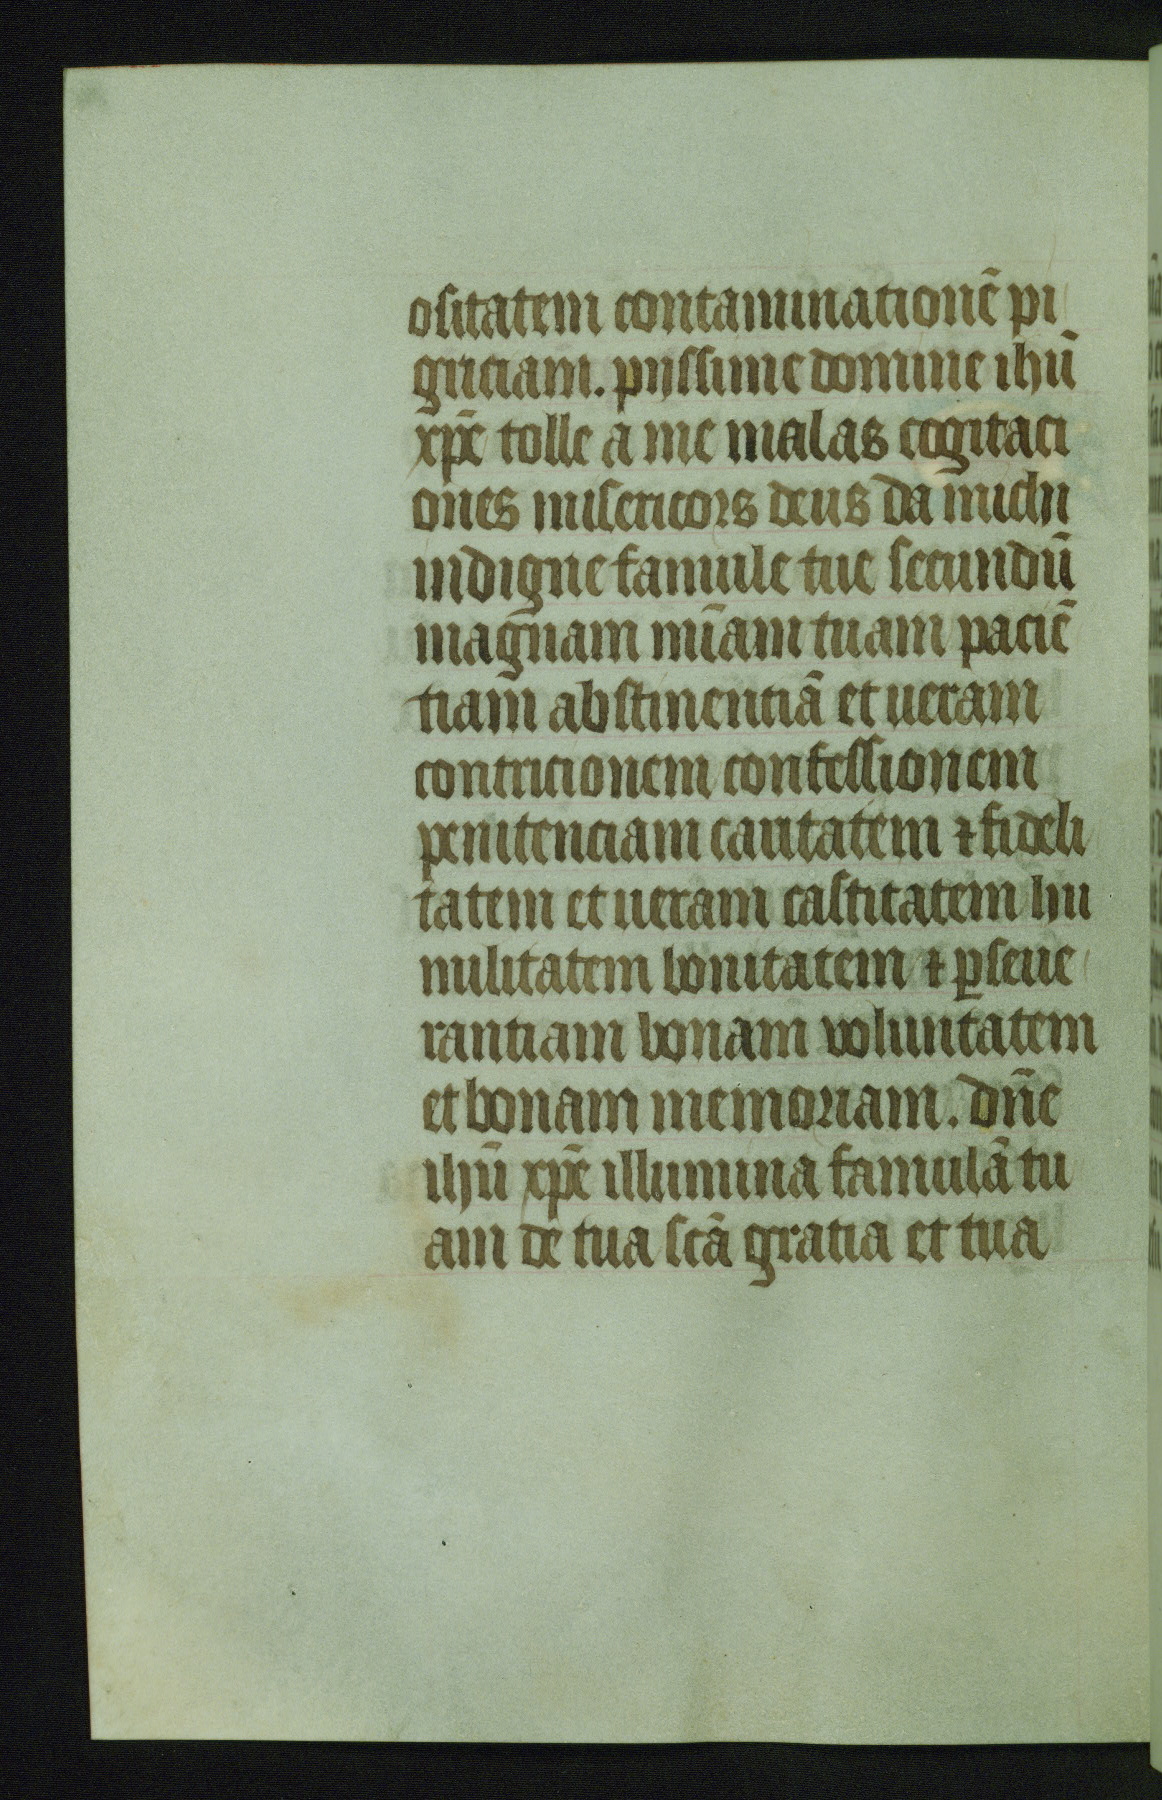 ositatem contaminationē pi
griciam. piissime domine ihū
xp̄e tolle a me malas cogitaci
ones misericors deus da michi
indigne famule tue secundū
magnam mīam tuam paciē
tiam abstinentiā et ueram
contricionem confessionem
penitenciam caritatem ⁊ fideli
tatem et ueram castitatem hu
militatem bonitatem ⁊ ꝑseue
rantiam bonam voluntatem
et bonam memoriam. dn̄e
ihū xp̄e illumina famulā tu
am de tua scā gratia et tua